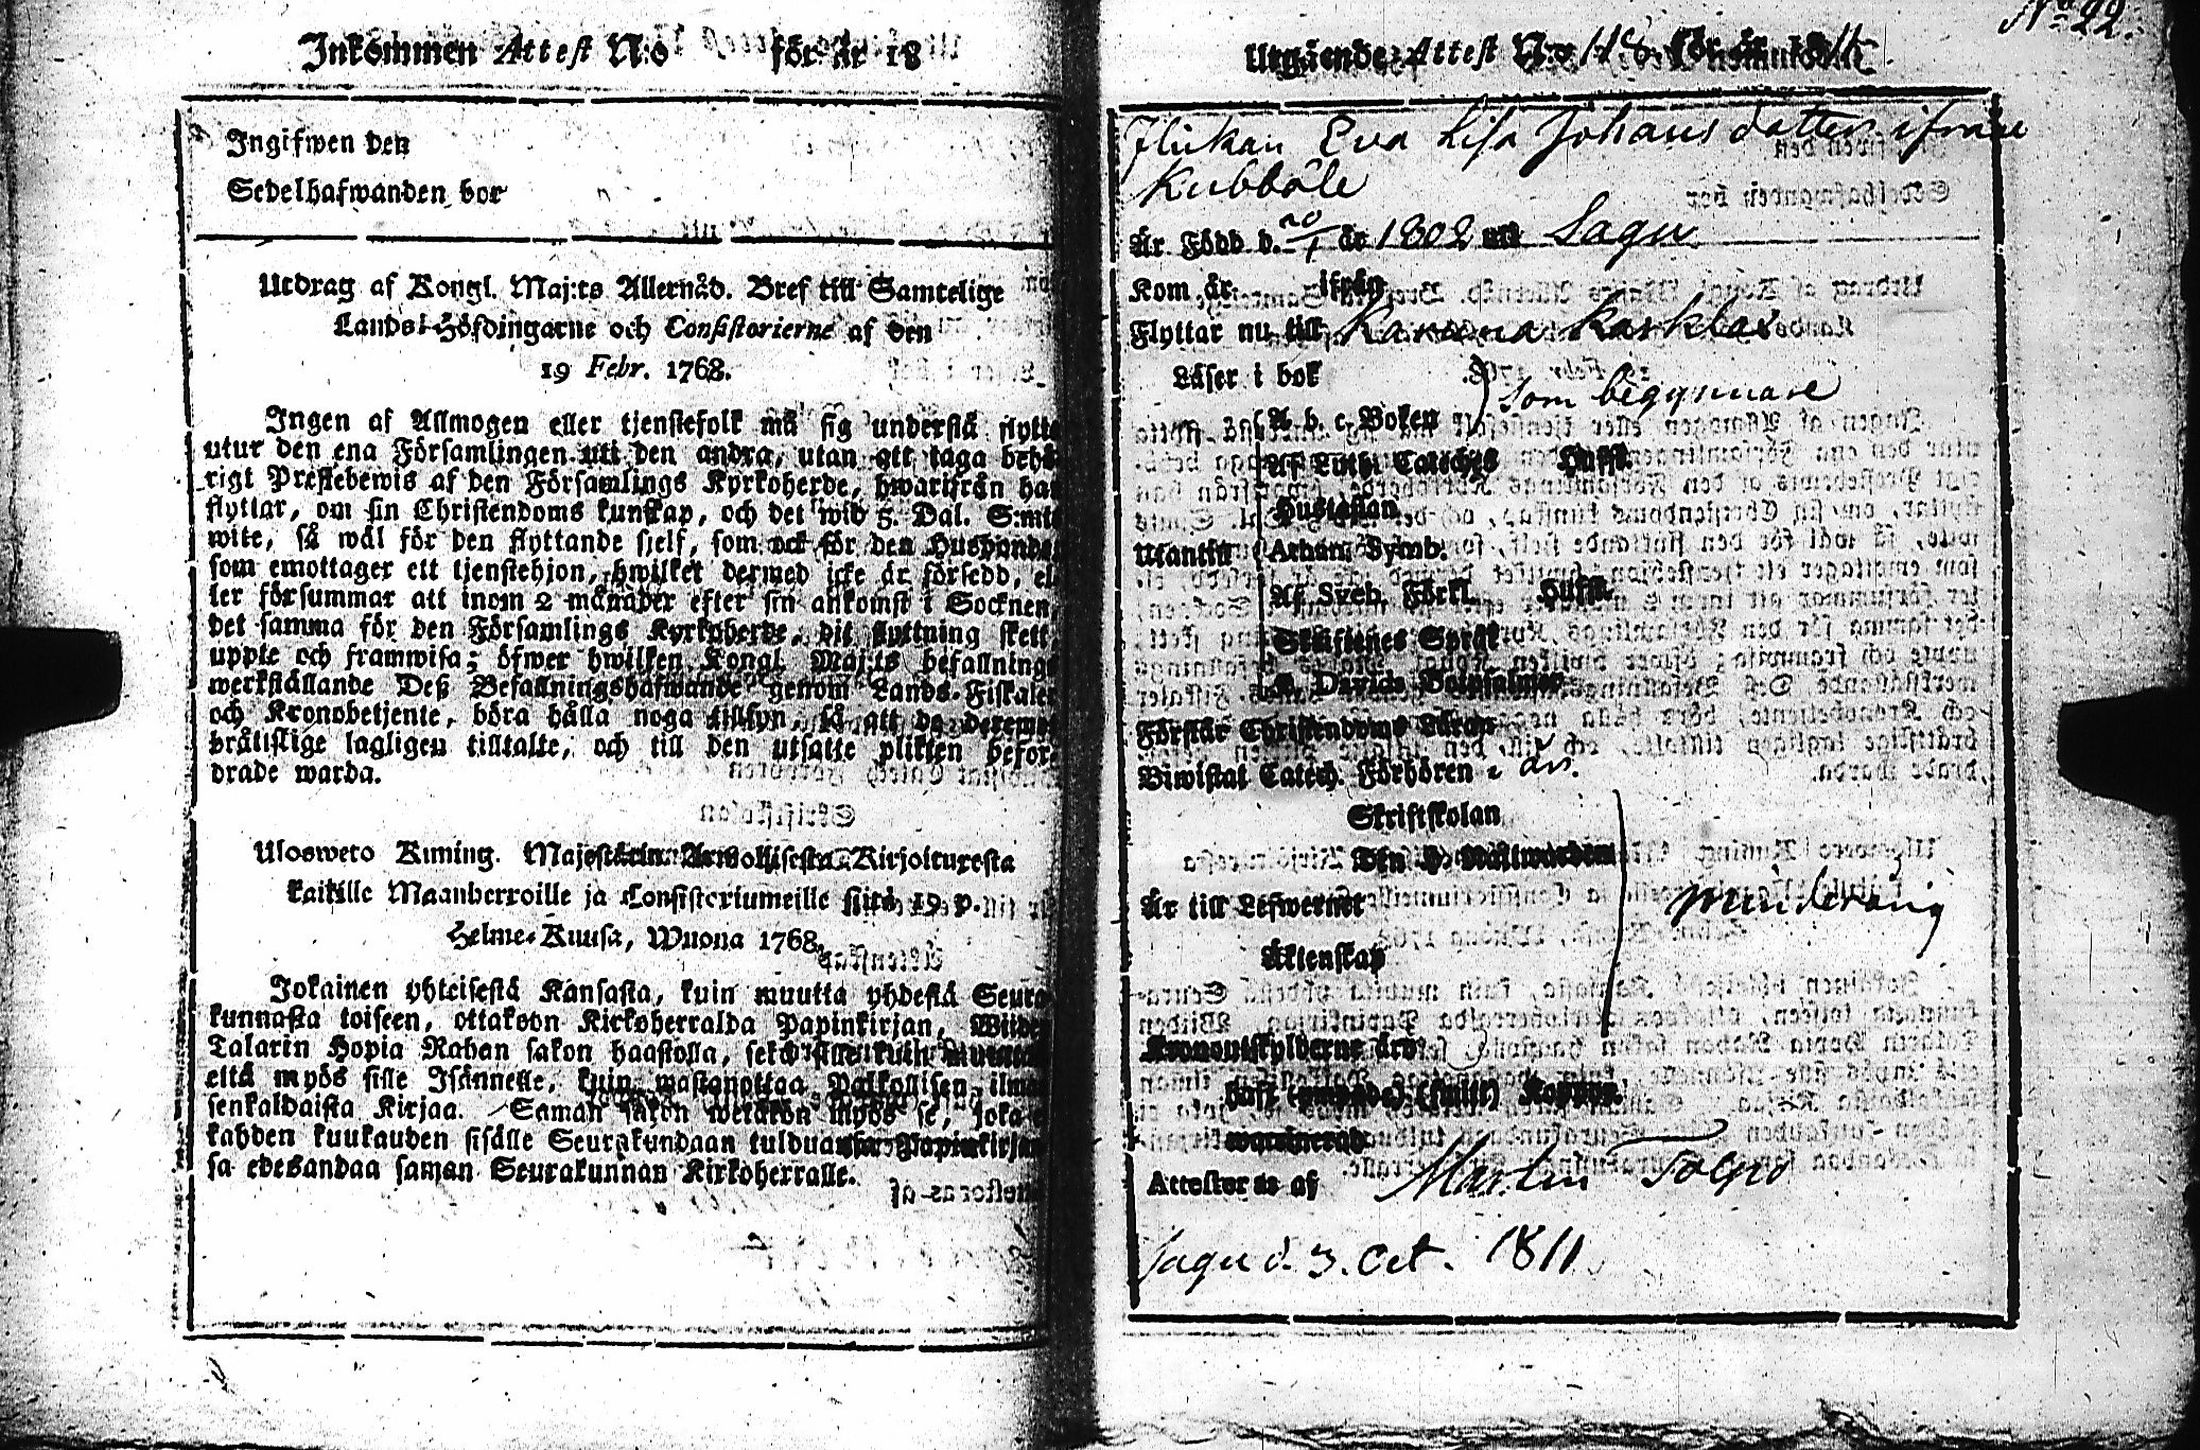 Inkommen Attest N:o för år 18
Ingifwen den
Sedelhafwanden bor
Utdrag af Kongl. Maj:ts Allernåd. Bref till Samtelige
Lands-Höfdingarne och Consistorierne af den
19 Febr. 1768.
Ingen af Allmogen eller tjenstefolk må sig understå flytta
utur den ena Församlingen uti den andra, utan att taga behö-
rigt Prestebewis af den Församlings Kyrkoherde, hwarifrån han
flyttar, om sin Christendoms kunskap, och det wid 5. Dal. S:mts
wite, så wäl för den flyttande sjelf, som ock för den Husbonde,
som emottager ett tjenstehjon, hwilket dermed icke är försedd, el-
ler försummar att inom 2 månader efter sin ankomst i Socknen,
det samma för den Församlings Kyrkoherde, dit flyttning skett,
uppte och framwisa; öfwer hwilken Kongl. Maj:ts befallnings
werkställande Deß Befallningshafwande genom Lands-Fiskaler
och Kronobetjente, böra hålla noga tillsyn, så att de deremot
bråttslige lagligen tilltalte, och till den utsatte plikten befor-
drade warda.
Ulosweto Kuning. Majestätin Armollisesta Kirjoituxesta
kaikille Maanherroille ja Consistoriumeille siitä 19 p.
Helme-Kuusa, Wuona 1768.
Jokainen yhteisestä Kansasta, kuin muutta yhdestä Seura-
kunnasta toiseen, ottakoon Kirkoherralda Papinkirjan, Wiiden
Talarin Hopia Rahan sakon haastolla, sekä sille kuin muuttaa
että myös sille Isännelle, kuin wastanottaa Palkollisen ilman
senkaldaista Kirjaa. Saman sakon wetäkön myös se, joka ei
kahden kuukauden sisälle Seurakundaan tulduansa Papinkirjan-
sa edesandaa saman Seurakunnan Kirkoherralle.
N:o 22.
Utgående Attest N:o 118 för år 1811
Flickan Eva Lisa Johans dotter ifrån
Kubböle
Är Född d. 20/1 år 1802 uti Sagu
Kom år ifrån
Flyttar nu till Karuna Karklax
Läser i bok
A. b. c. Boken som begynnare
Af Luth. Cateches Hufst.
Hustaflan
Utantill Athan. Symb.
Af Sveb. Förkl. Hufst.
Skriftenes Språk
Davids Botpsalmer
Förstår Christendoms Läran
Biwistat Catech. Förhören
Skriftskolan
Den H. Nattwarden
Är till Lefwernet minderårig
Äktenskap
Kronoutskylderne äro
Haft (ympade) (sjelf) Koppor.
waccinerad
Attesteras af Martin Tolpo
Sagu d. 3. Oct. 1811